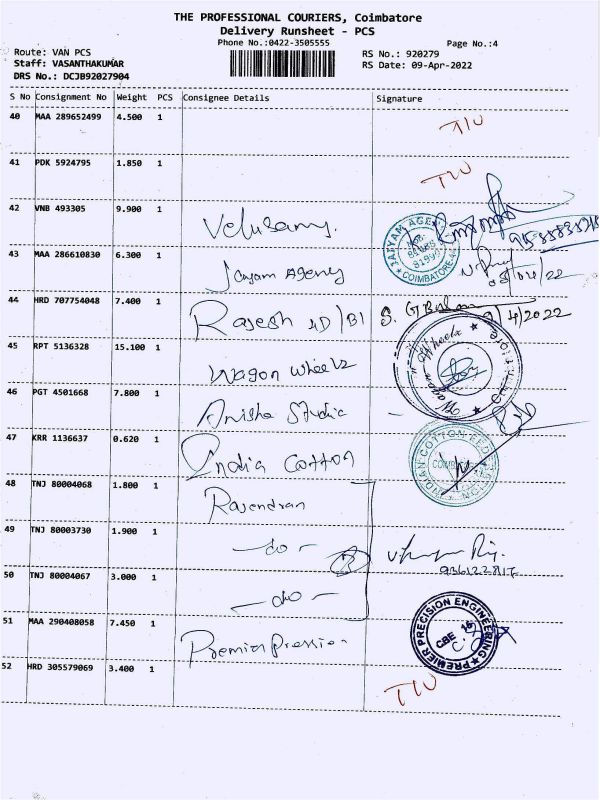 THE PROFESSIONAL COURIERS, Coimbatore
Delivery Runsheet - PCS
Phone No.:0422-3505555
Page No.:4
Route: VAN PCS
RS No.: 920279
Staff: VASANTHAKUMAR
RS Date: 09-Apr-2022
DRS No.: DCJB92027904
S No Consignment No Weight PCS Consignee Details Signature
40 MAA 289652499 4.500 1
41 PDK 5924795 1.850 1
42 VNB 493305 9.900 1 Velusamy.
43 MAA 286610830 6.300 1 Jayam Agency
COIMBATORE
44 HRD 707754048 7.400 1 Rajesh
9/4/2022
45 RPT 5136328 15.100 1 Wagon wheelz
Wagon Wheelz
46 PGT 4501668 7.800 1 Anisha Studio
47 KRR 1136637 0.620 1 India Cotton
INDIAN COTTON
48 TNJ 80004068 1.800 1 Rajendran
49 TNJ 80003730 1.900 1 - do -
50 TNJ 80004067 3.000 1 - do -
51 MAA 290408058 7.450 1 Premier
PREMIER PRECISION ENGINEERING
CBE
52 HRD 305579069 3.400 1